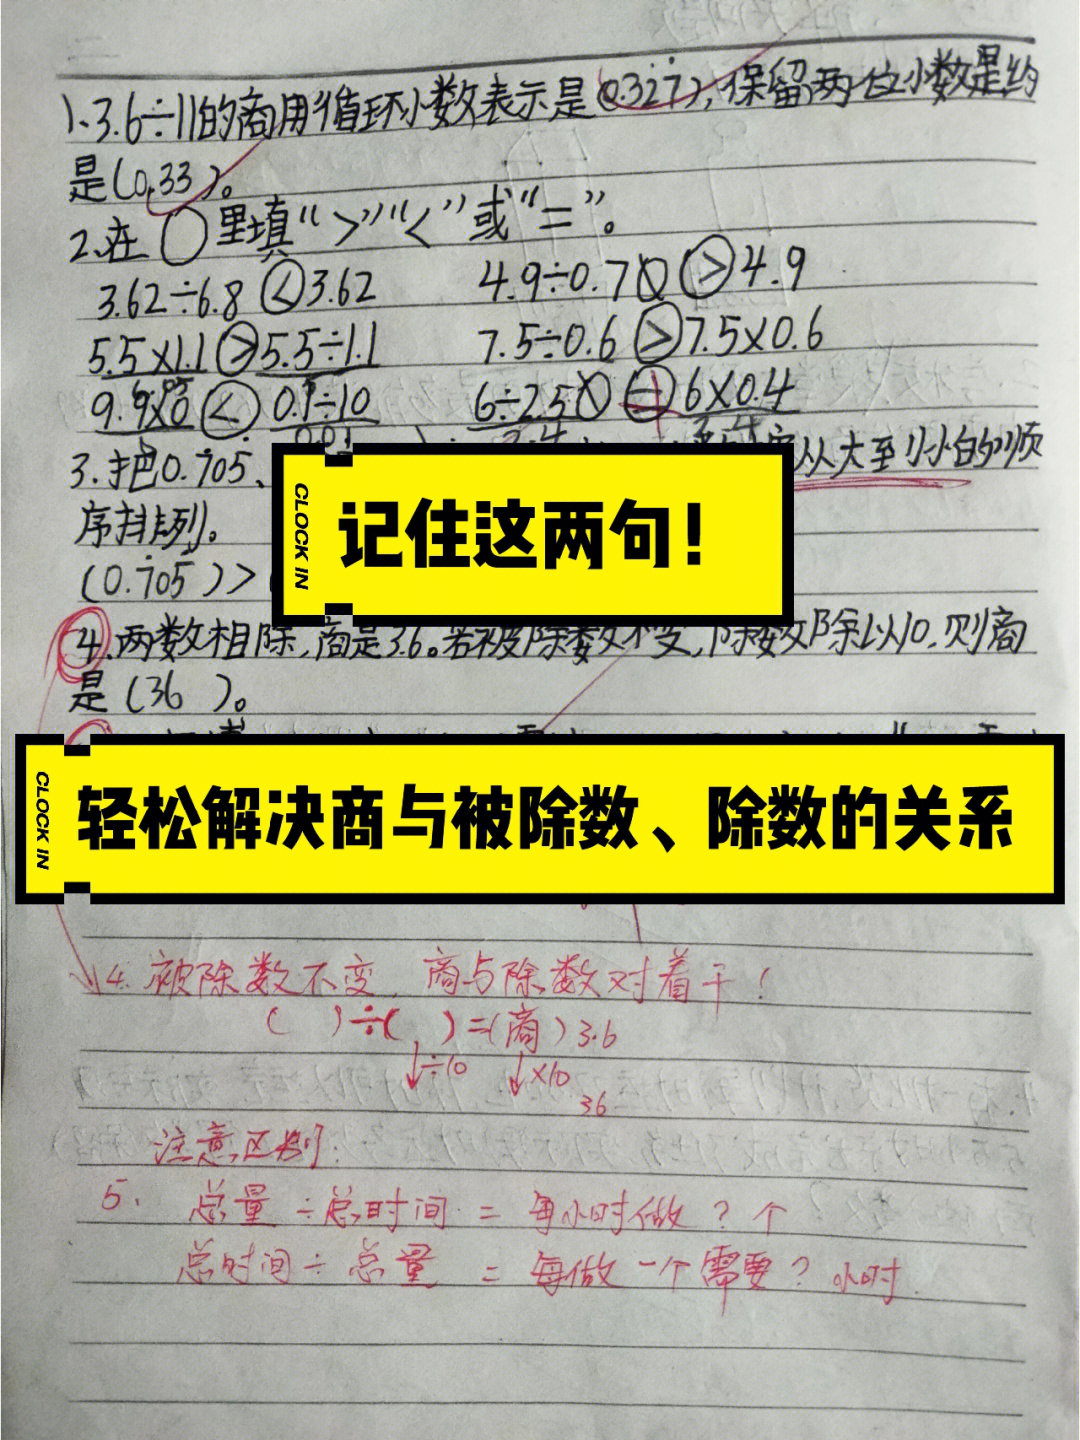 1、3.6÷11的商用循环小数表示是(0.32̇7̇),保留两位小数是约
是(0.33)。
2、在○里填“>”“<”或“=”。
3.62÷6.8 < 3.62 4.9÷0.7 > 4.9
5.5×1.1 > 5.5÷1.1 7.5÷0.6 > 7.5×0.6
9.9×0 < 0.1÷10 6÷2.5 = 6×0.4
0.01 2.4 2.4
3.把0.7̇05̇、 从大至小的顺
CLOCK IN
记住这两句!
序排列。
(0.7̇05̇)>
4、两数相除,商是3.6。若被除数不变,除数除以10,则商
是(36 )。
CLOCK IN
轻松解决商与被除数、除数的关系
4.被除数不变,商与除数对着干!
( )÷( )=(商)3.6
↓÷10 ↓×10
36
注意区别:
5. 总量÷总时间=每小时做?个
总时间÷总量=每做一个需要?小时